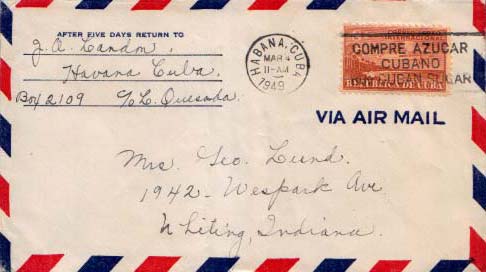 AFTER FIVE DAYS RETURN TO
J. A. Landon.
Havana Cuba.
Box 2109 c/o L. Quesada.
HABANA, CUBA
MAR 4
11-AM
1949
COMPRE AZUCAR
CUBANO
BUY CUBAN SUGAR
REPUBLICA DE CUBA
VIA AIR MAIL
Mrs. Geo. Lund.
1942 - Wespark Ave
Whiting, Indiana.